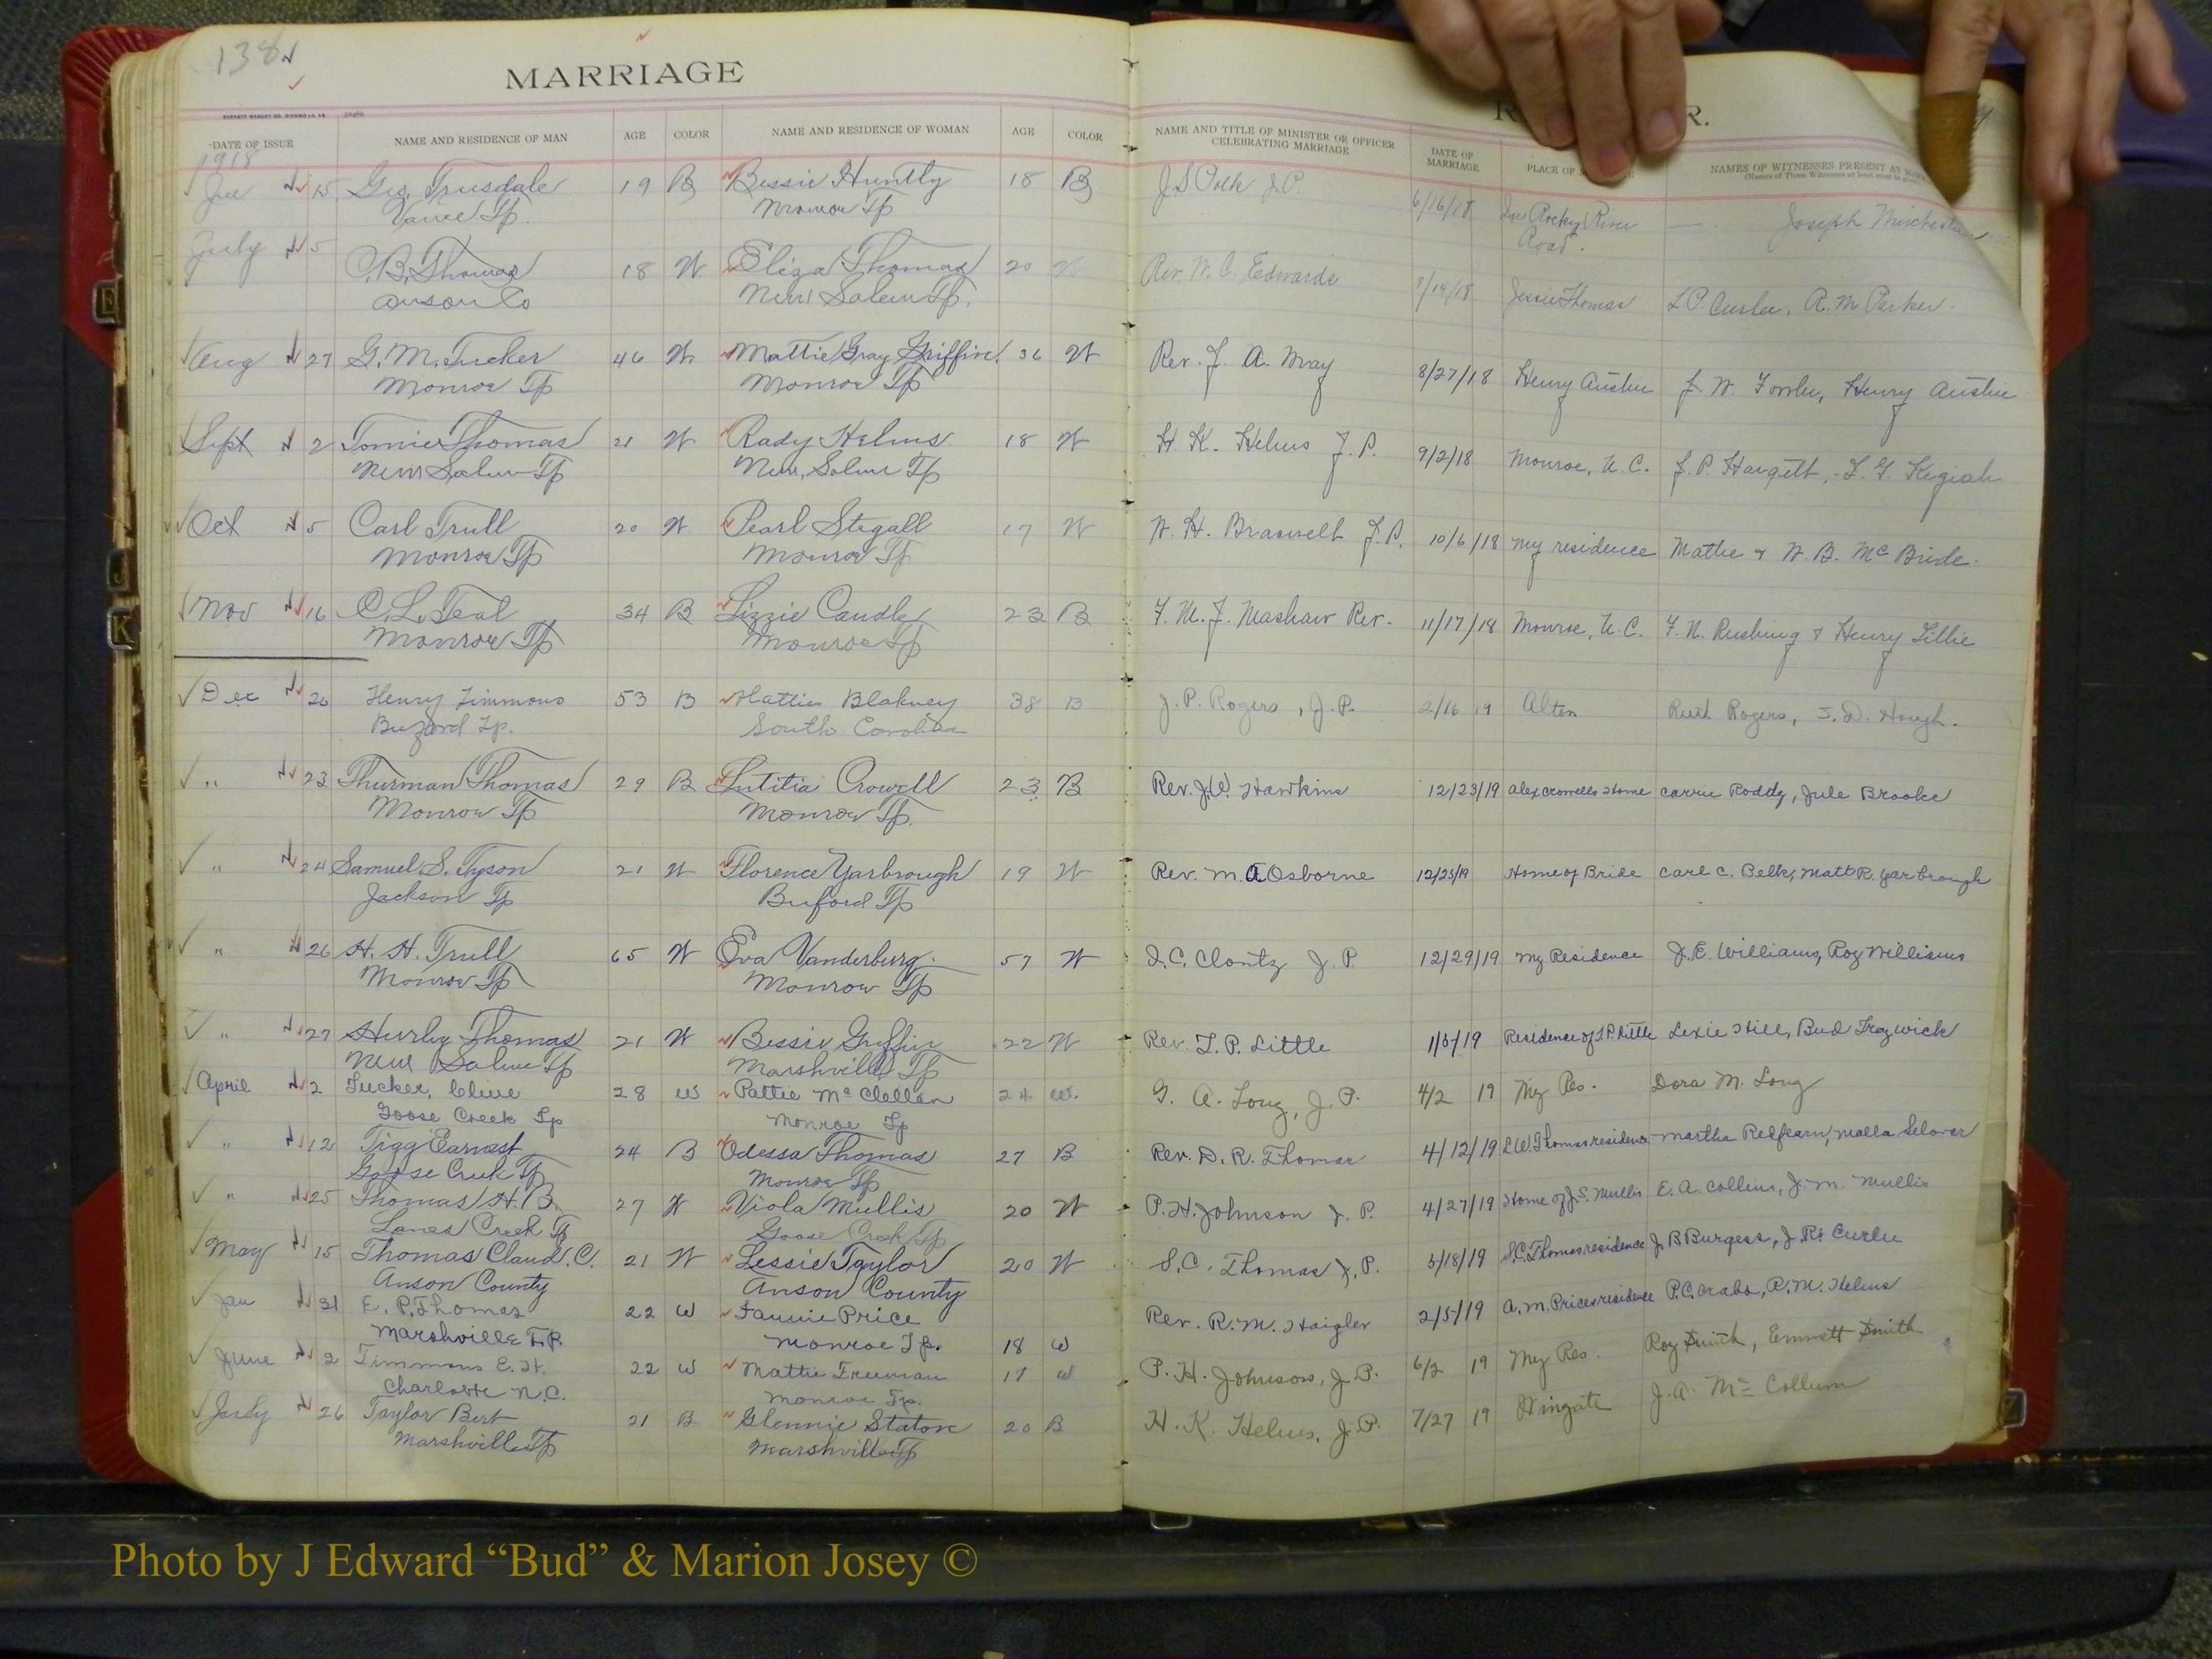 138
MARRIAGE
DATE OF ISSUE NAME AND RESIDENCE OF MAN AGE COLOR NAME AND RESIDENCE OF WOMAN AGE COLOR NAME AND TITLE OF MINISTER OR OFFICER CELEBRATING MARRIAGE DATE OF MARRIAGE PLACE OF NAMES OF WITNESSES PRESENT AT
1918
15 Geo. Trusdale 19 B Bessie Huntly 18 B J S Polk J.P. 6/16/18 Rocky River Joseph
Vance Tp. Monroe Tp Road.
July 5 C. B. Thomas 18 W Eliza Thomas 20 W Rev. W. C. Edwards /14/18 Jessie Thomas L P. Curlee, R. M Parker.
Anson Co New Salem Tp.
Aug 27 G. M. Tucker 46 W. Mattie Gray Griffin 36 W Rev. J. A. May 8/27/18 Henry Austin J. W. Fowler, Henry Austin
Monroe Tp Monroe Tp
Sept 2 Tomie Thomas 21 W Rady Helms 18 W H. K. Helms J. P. 9/2/18 Monroe, N. C. J. P. Hargett, F. G.
New Salem Tp New Salem Tp
Oct 5 Carl Trull 20 W. Pearl Stegall 17 W W. H. Braswell J. P. 10/6/18 My residence Mattie & W. B. McBride.
Monroe Tp Monroe Tp
Nov 16 C. L. Teal 34 B Lizzie Caudle 23 B F. M. J. Mashaw Rev. 11/17/18 Monroe, N. C. F. N. Rushing & Henry Lillie
Monroe Tp Monroe Tp
Dec 26 Henry Timmons 53 B Hattie Blakney 38 B J. P. Rogers, J. P. 2/16 19 Alton Ruth Rogers, S. D. Hough.
Buford Tp. South Carolina
" 23 Thurman Thomas 29 B Lutitia Crowell 23 B Rev. J. W. Hawkins 12/23/19 Alex Crowells Home Carrie Roddy, Jule Brooks
Monroe Tp Monroe Tp.
" 24 Samuel S. Tyson 21 W Florence Yarbrough 19 W Rev. M. A Osborne 12/25/19 Home of Bride Carl C. Belk, Matt R. Yarbrough
Jackson Tp Buford Tp
" 26 H. H. Trull 65 W Eva Vanderburg. 57 W I. C. Clontz J. P. 12/29/19 My Residence J. E. Williams, Roy Williams
Monroe Tp Monroe Tp
" 27 Hurley Thomas 21 W Bessie Griffin 22 W Rev. L. P. Little 1/5/19 Residence of L P. Little Lexie Hill, Bud Trezwick
New Salem Tp Marshville Tp
April 2 Tucker, Cline 28 W Pattie McClellan 24 W. G. A. Long, J. P. 4/2 19 My Res. Dora M. Long
Goose Creek Tp Monroe Tp
" 12 Tigg Earnest 24 B Odessa Thomas 27 B Rev. D. R. Thomas 4/12/19 L. W. Thomas residence Martha Redfearn, Malla Selover
Goose Creek Tp Monroe Tp
" 25 Thomas H. B. 27 W Viola Mullis 20 W P. H. Johnson J. P. 4/27/19 Home of J. S. Mullis E. A. Collins, J. M. Mullis
Lanes Creek Tp Goose Creek Tp
May 15 Thomas Claud. C. 21 W Lessie Taylor 20 W S. C. Thomas J. P. 5/18/19 S. C. Thomas residence J. B Burgess, J. R. Curlee
Anson County Anson County
Jan 31 E. P. Thomas 22 W Fannie Price 18 W Rev. R. M. Haigler 2/5/19 A. M. Prices residence P. C. Crabs, R. M. Helms
Marshville T.P. Monroe Tp.
June 2 Timmons E. H. 22 W Mattie Freeman 17 W P. H. Johnson, J. P. 6/2 19 My Res. Roy Smith, Emmett Smith
Charlotte N.C. Monroe Tp.
July 26 Taylor Bert 21 B Glennie Staton 20 B H. K. Helms, J. P. 7/27 19 Wingate J. A. McCollum
Marshville Tp Marshville Tp
Photo by J Edward “Bud” & Marion Josey ©